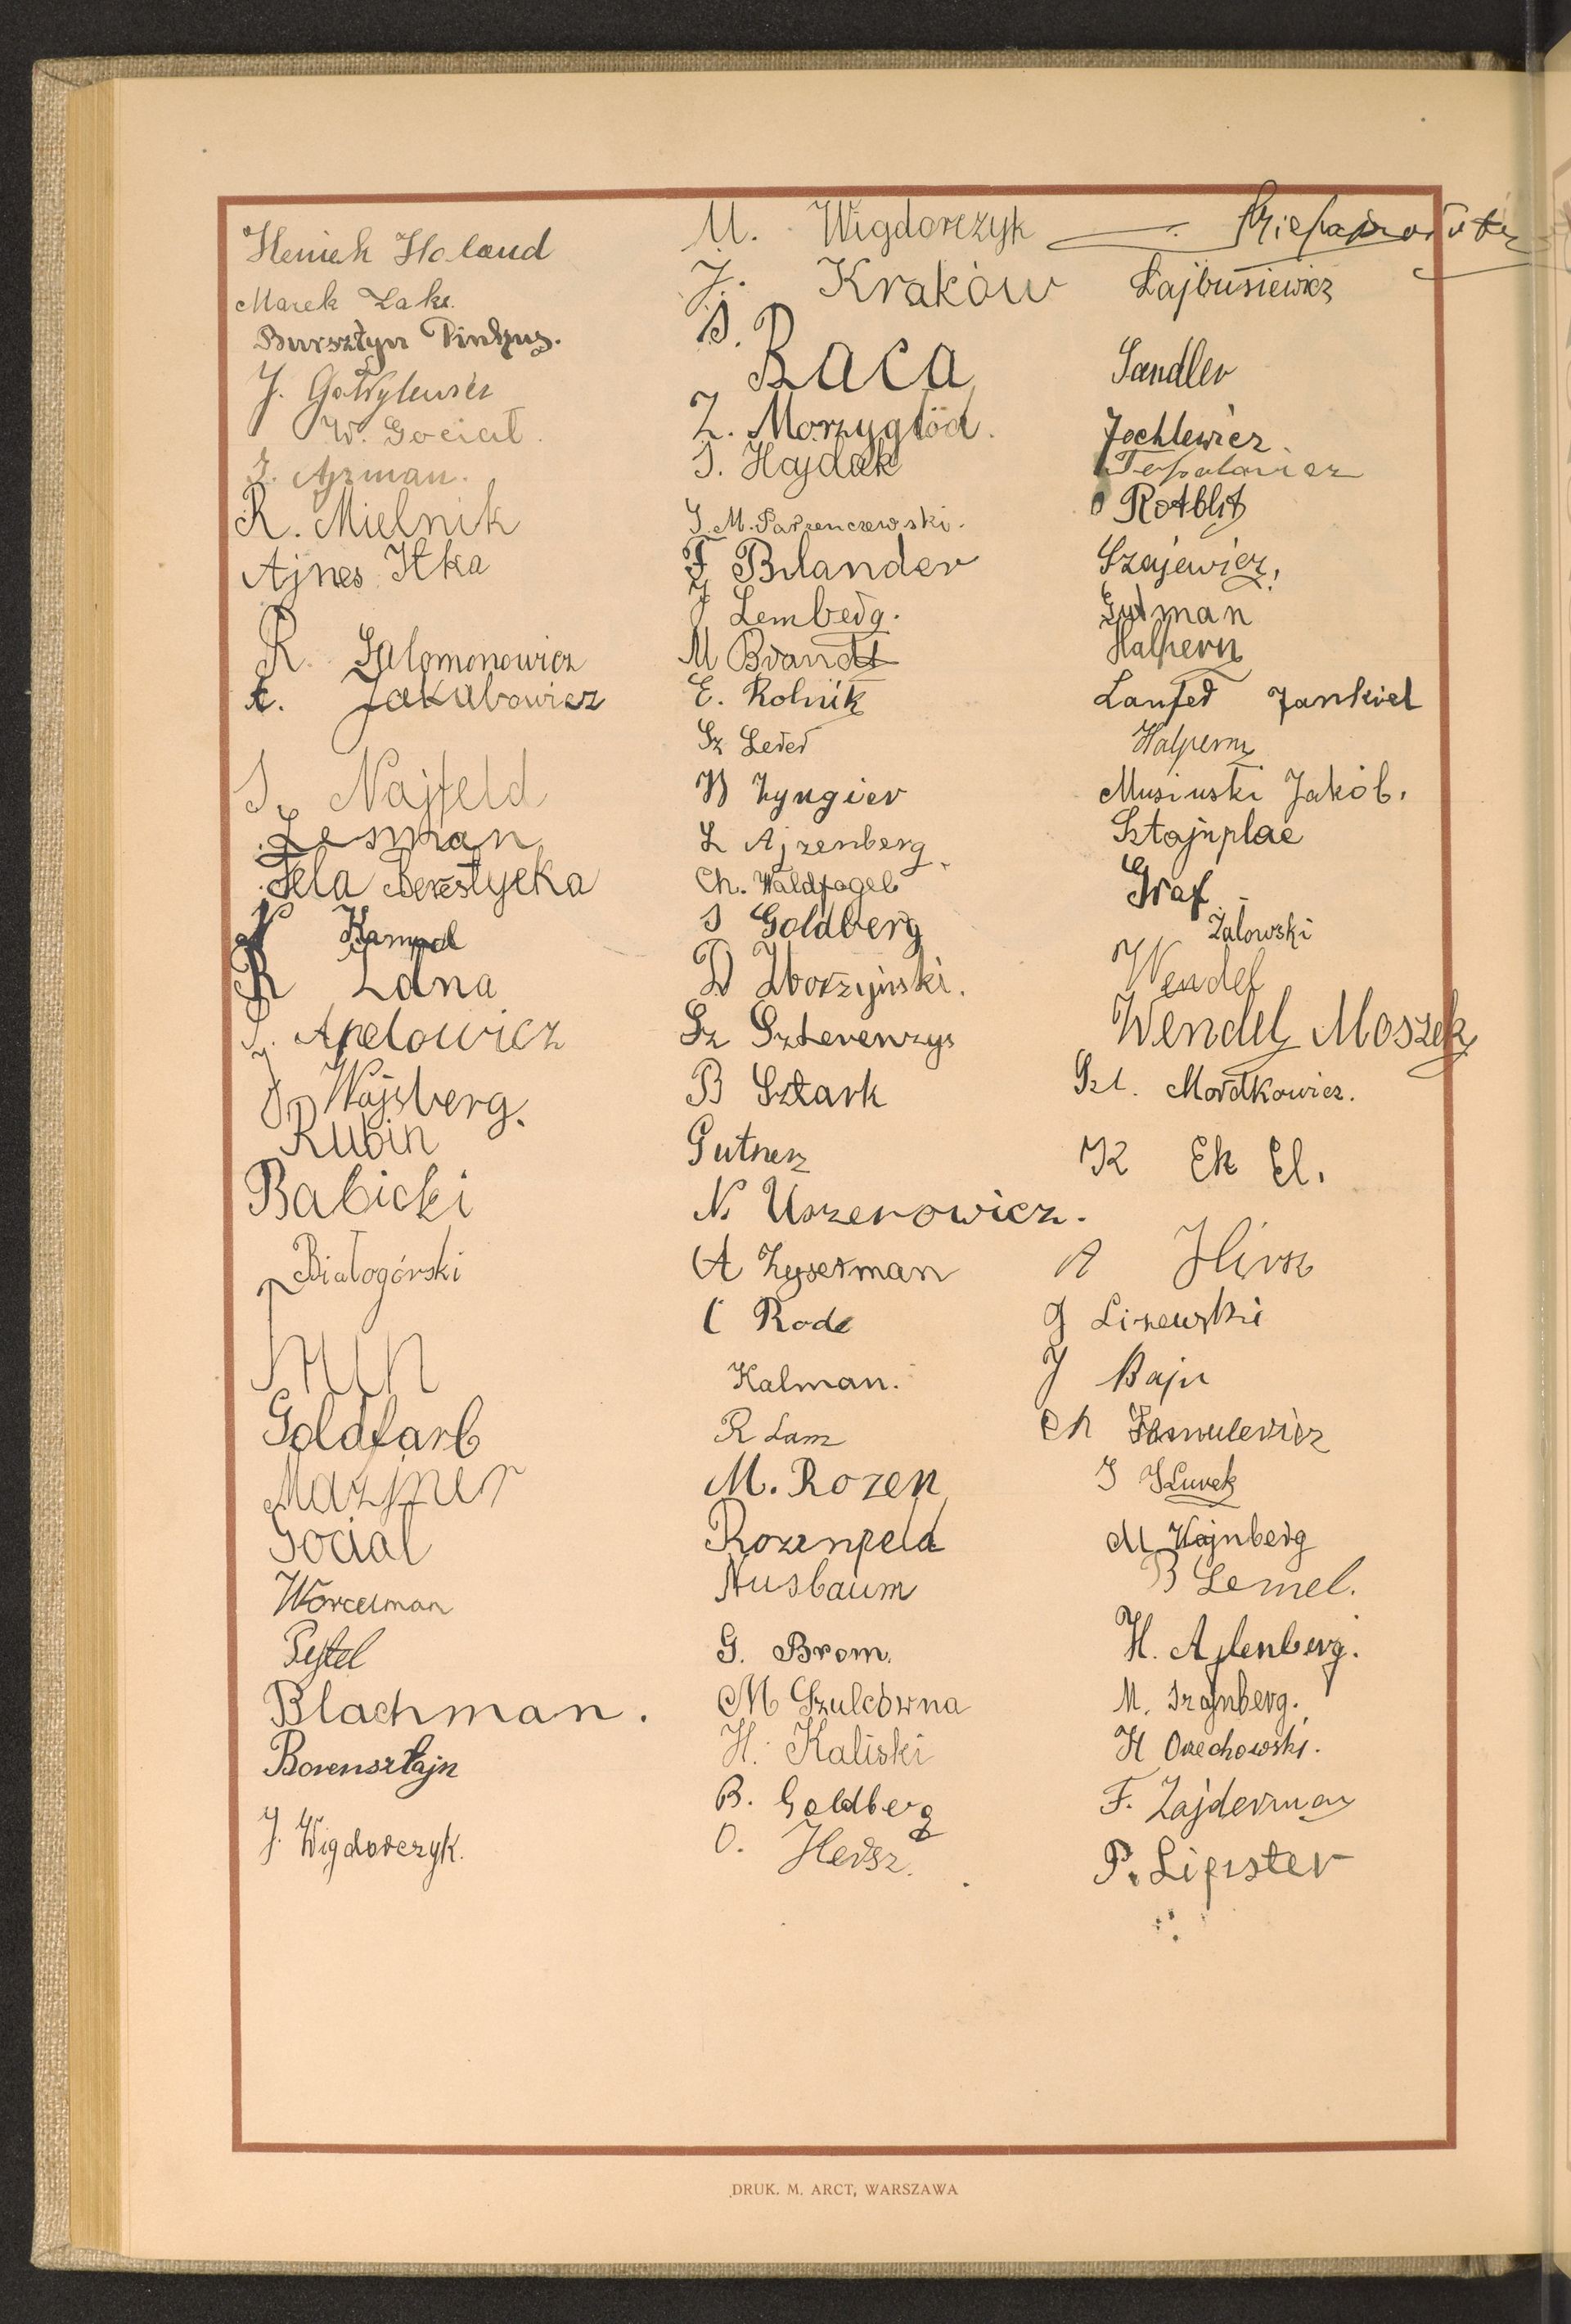 Heniek Holand
Marek Lake
Bursztyn Pinkus.
J.
W. Gociał.
J. Ajzman.
R. Mielnik
Ajnes Itka
R. Salomonowicz
A. Jakubowicz
S. Najfeld
Lesman
Fela Berestycka
Kampel
R Zdna
S. Apelowicz
J Wajsberg.
Rubin
Babicki
Białogórski
Goldfarb
Mazjner
Gocial
Worcelman
Pejtel
Blachman.
Borensztajn
J. Wigdorczyk.
M. Wigdorczyk
J. Kraków
S. Raca
Z. Morzygłód.
S. Hajdak
J. M. Parzenczewski.
F Bilander
J Lemberg.
M Brandt
E. Rolnik
Sz Leder
W Zyngier
L Ajzenberg
Ch. Waldfogel
S Goldberg
D Zborzyński.
Sz Szterenzys
B Sztark
Gutnerz
N. Uszerowicz.
A Zyserman
C Rode
Kalman.
R Lam
M. Rozen
Rozenpeld
Nusbaum
G. Brom.
M Szulcówna
H. Kaliski
B. Goldberg
O. Hersz.
Łajbusiewicz
Sandler
Jochlewicz
Rotblit
Szajewicz,
Gutman
Halpern
Lanfer Jankiel
Halpern
Musiuski Jakób.
Sztajnplac
Graf
Zalowski
Wendel
Wendel Moszek
Szl. Mordkowicz.
K Ek El.
A Hirsz
G Liszewski
J Bajn
Ch Szmulewicz
M Wajnberg
B Lemel.
H. Ajlenberg.
M. Szajnberg.
H Orzechowski.
F. Zajderman
P. Lipszter
DRUK. M. ARCT, WARSZAWA